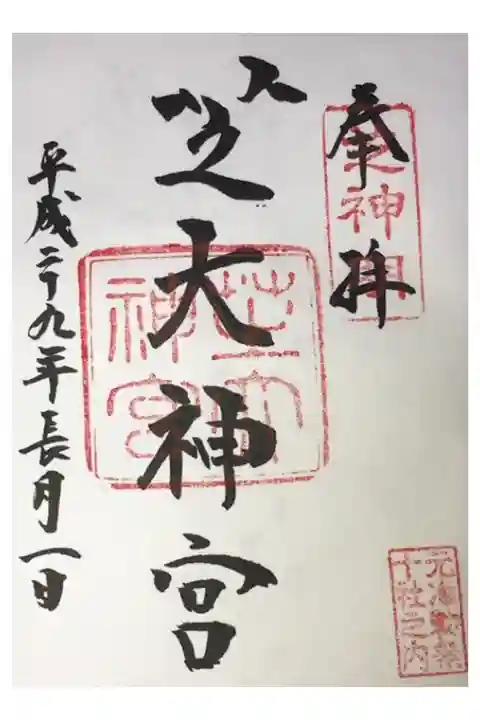 奉拝
芝大神宮
平成二十九年長月一日
芝大神宮
十社之内